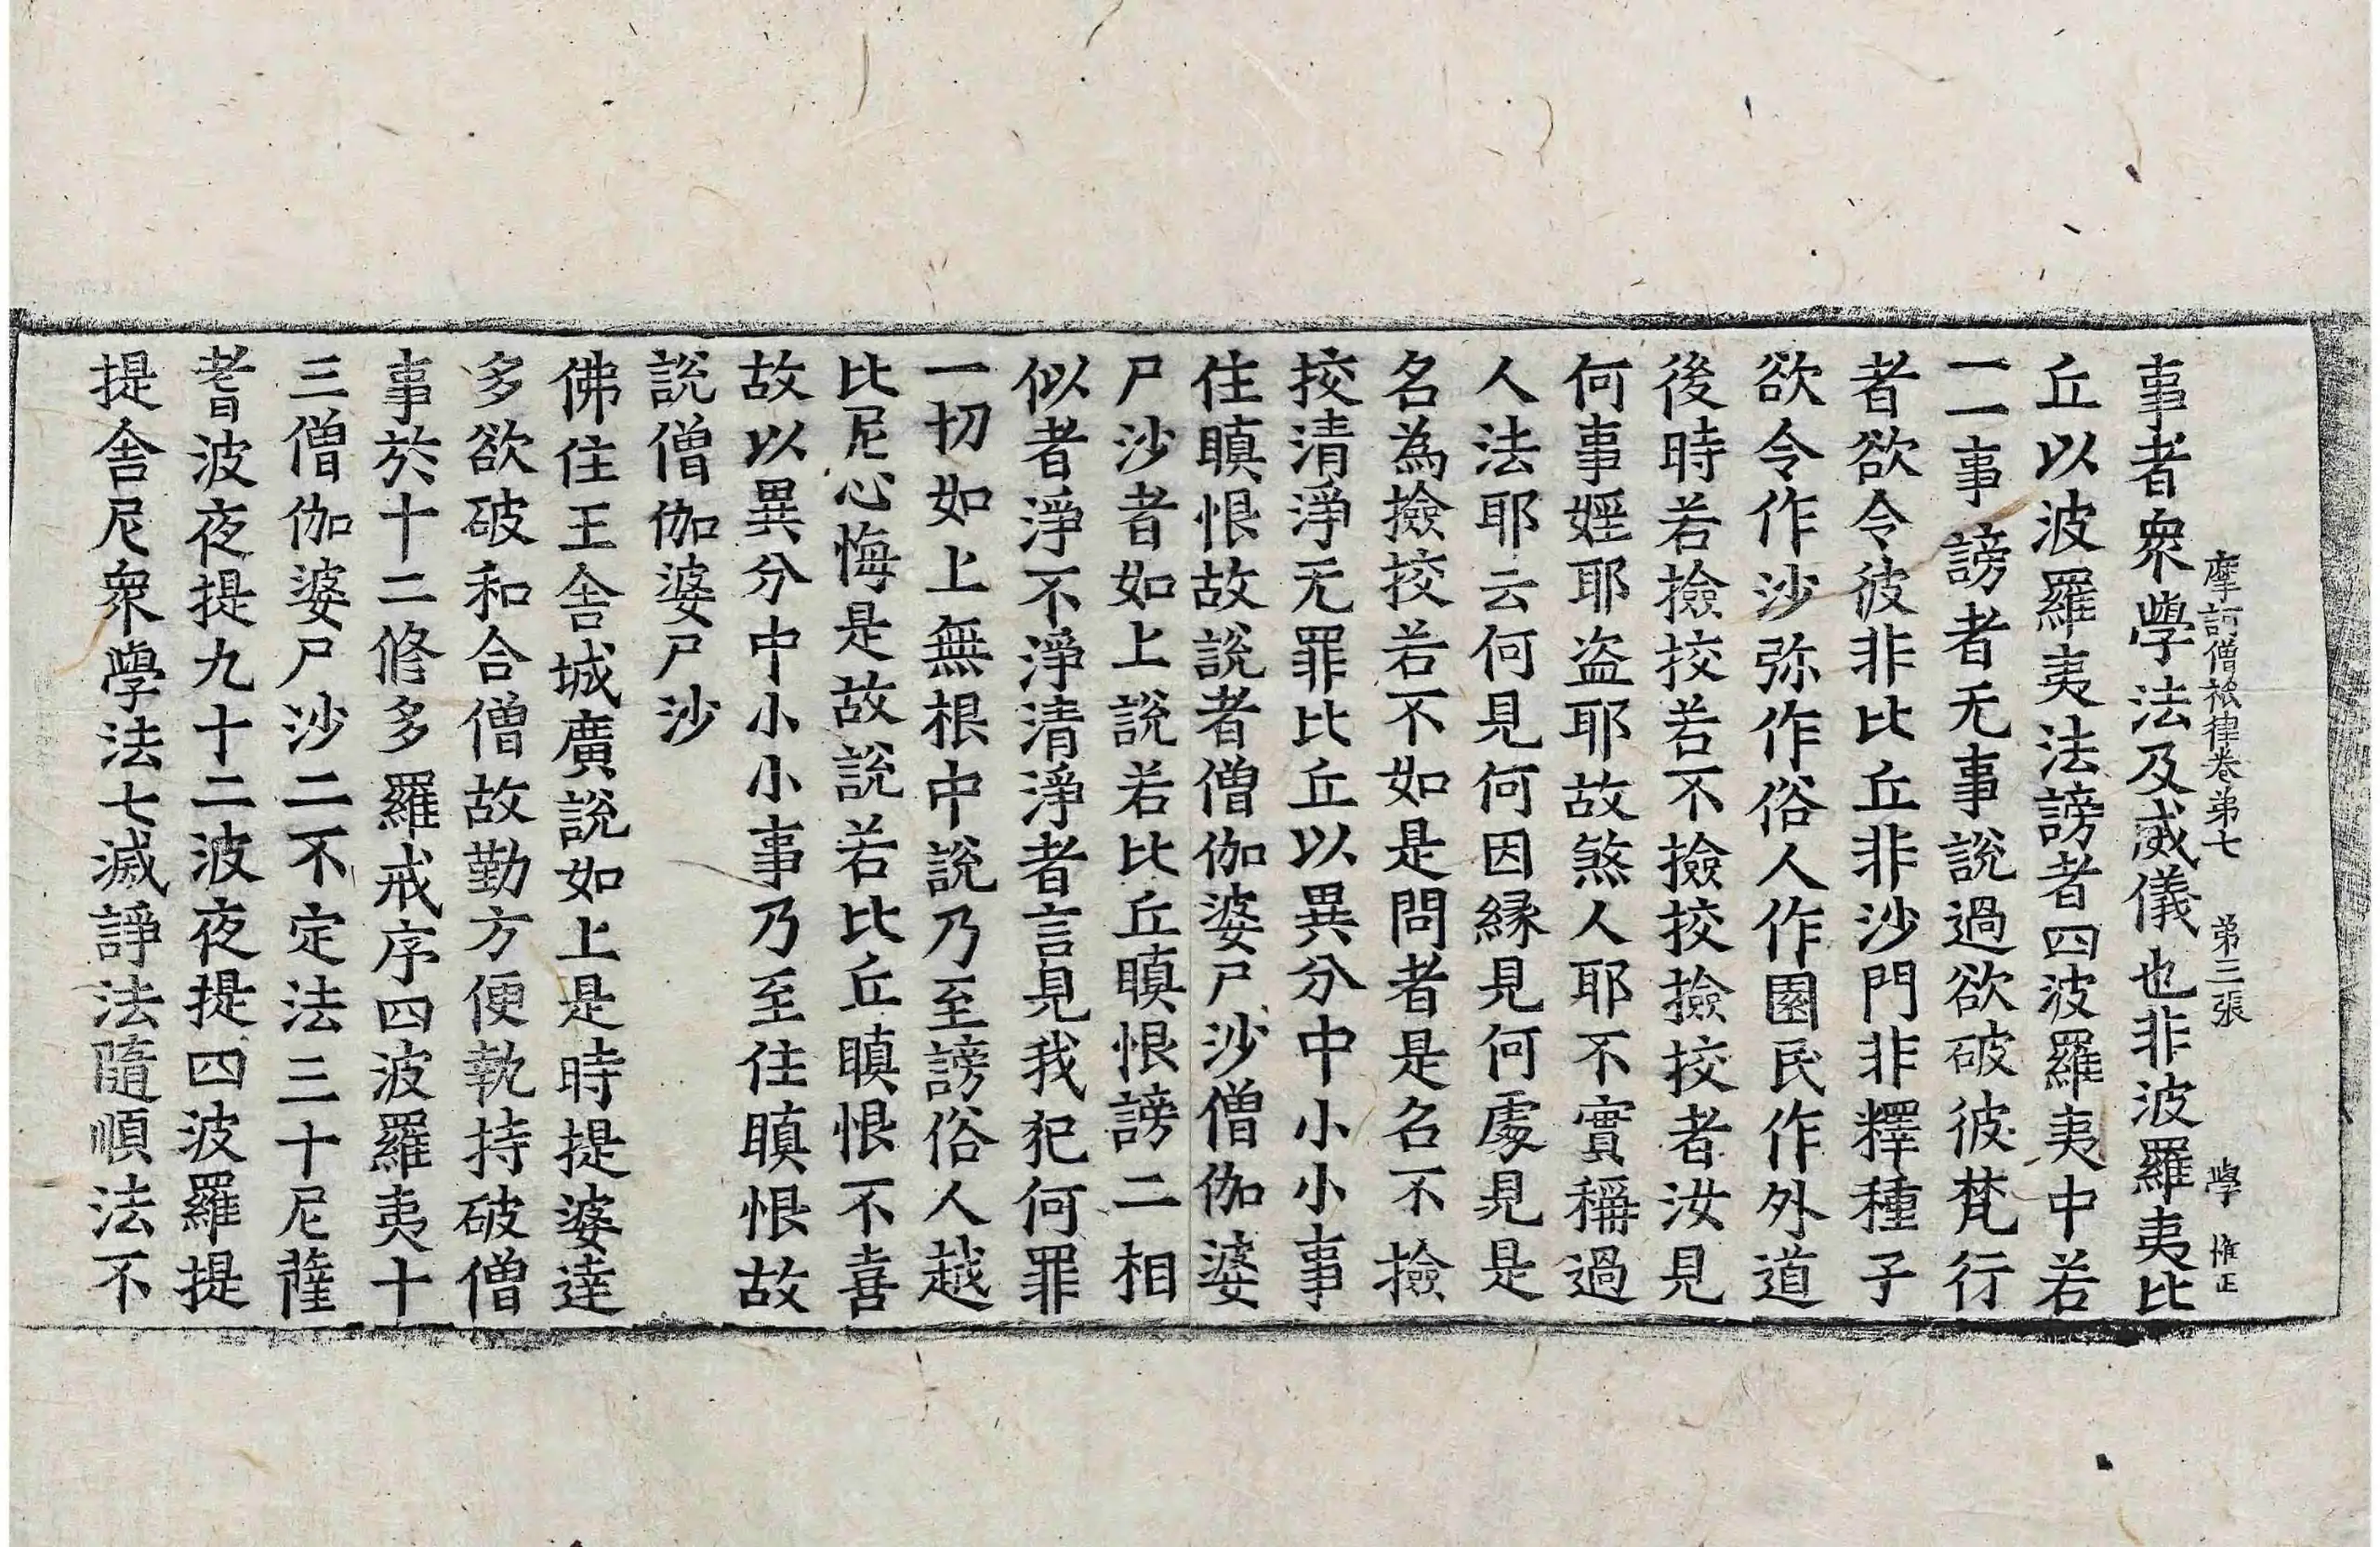 摩訶僧祇律卷第七 第三張 學 惟正
事者衆學法及威儀也非波羅夷比
丘以波羅夷法謗者四波羅夷中若
一一事謗者无事說過欲破彼梵行
者欲令彼非比丘非沙門非釋種子
欲令作沙弥作俗人作園民作外道
後時若撿挍若不撿挍撿挍者汝見
何事婬耶盗耶故煞人耶不實稱過
人法耶云何見何因緣見何處見是
名為撿挍若不如是問者是名不撿
挍清淨无罪比丘以異分中小小事
住瞋恨故說者僧伽婆尸沙僧伽婆
尸沙者如上說若比丘瞋恨謗二相
似者淨不淨清淨者言見我犯何罪
一切如上無根中說乃至謗俗人越
比尼心悔是故說若比丘瞋恨不喜
故以異分中小小事乃至住瞋恨故
說僧伽婆尸沙
佛住王舍城廣說如上是時提婆達
多欲破和合僧故勤方便執持破僧
事於十二修多羅戒序四波羅夷十
三僧伽婆尸沙二不定法三十尼薩
耆波夜提九十二波夜提四波羅提
提舍尼衆學法七滅諍法隨順法不